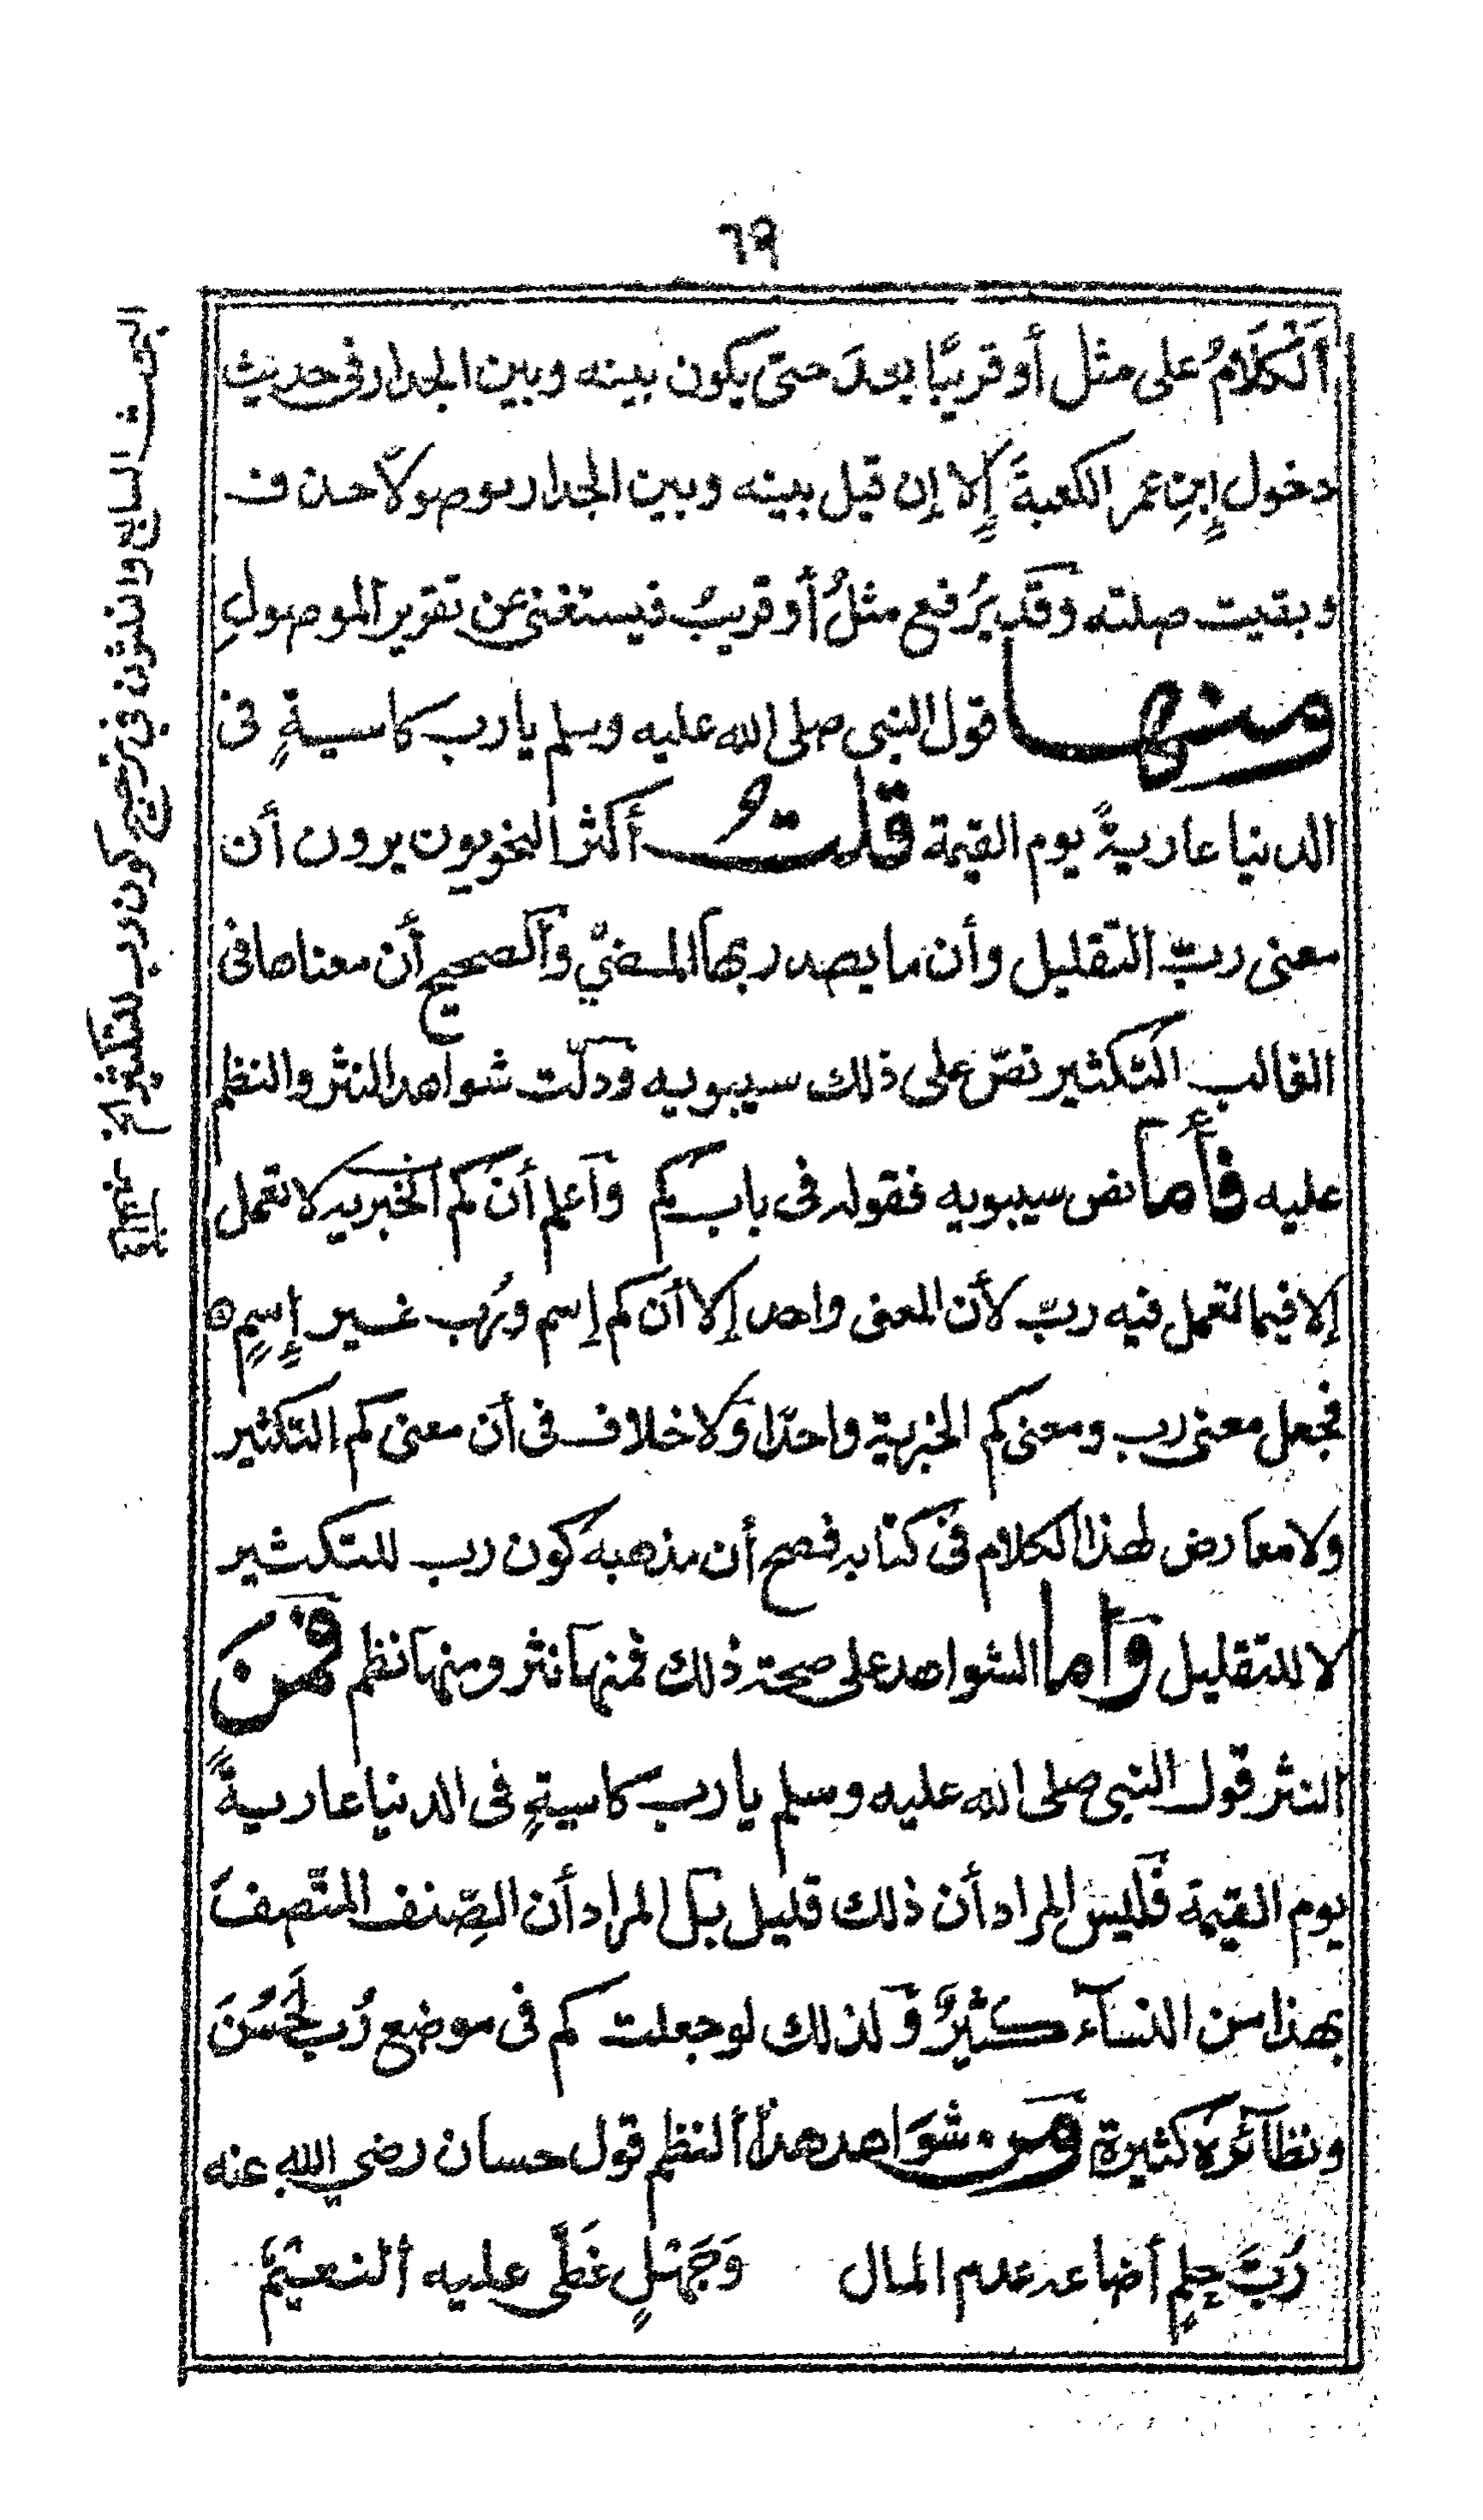 ٦٩
اَلْكَلَامُ على مثل أو قريبًا بعدَ حتى يكون بينه وبين الجدار فى حديث
دخول إِبنِ عمر الكعبةَ إِلا إن قيل بينه وبين الجدار موصولًا حذف
وبقيت صلته وقد يُرفع مثلُ أو قريبُ فيستغنى عن تقرير الموصولِ
ومنها قول النبى صلى الله عليه وسلم يا رب كاسيةٍ فى
الدنيا عاريةً يوم القيمة قلتُ أكثر النحويون يرون أن
معنى ربّ التقليل وأن ما يصدر بها المضيّ وألصحيح أن معناها فى
الغالب التكثير نصّ على ذلك سيبويه ودلّت شواهد النثر والنظم
عليه فأما نص سيبويه فقوله فى باب كم وآعلم أن كم الخبريه لا تعمل
إلا فيما تعمل فيه ربّ لأن المعنى واحد إلا أن كم إسم ورُب غير إِسمٍ ه
فجعل معنى رب ومعنى كم الخبرية واحدًا وَلا خلاف فى أن معنى كم التكثير
ولا معارض لهذا الكلام فى كتابه فصح أن مذهبه كون رب للتكثير
لا للتقليل وَأما الشواهد على صحة ذلك فمنها نثر ومنها نظم فمن
النثر قول النبى صلى الله عليه وسلم يا رب كاسيةٍ فى الدنيا عاريةً
يوم القيمة فَليس المراد أن ذلك قليل بل المراد أن الصِّنف المتّصفَ
بهذا من النسآء كثيرٌ وَلذلك لو جعلت كم فى موضع رُب لَحَسُنَ
ونظآئره كثيرة ومن شوَاهد هذا ألنظم قول حسان رضي الله عنه
رُبَّ حِلمٍ أضاعه عدم المال وَجَهْلٍ غَطَّى عليه ألنعيْمُ
البحث السابع والستون فى ترجيح كون رب للتكثير